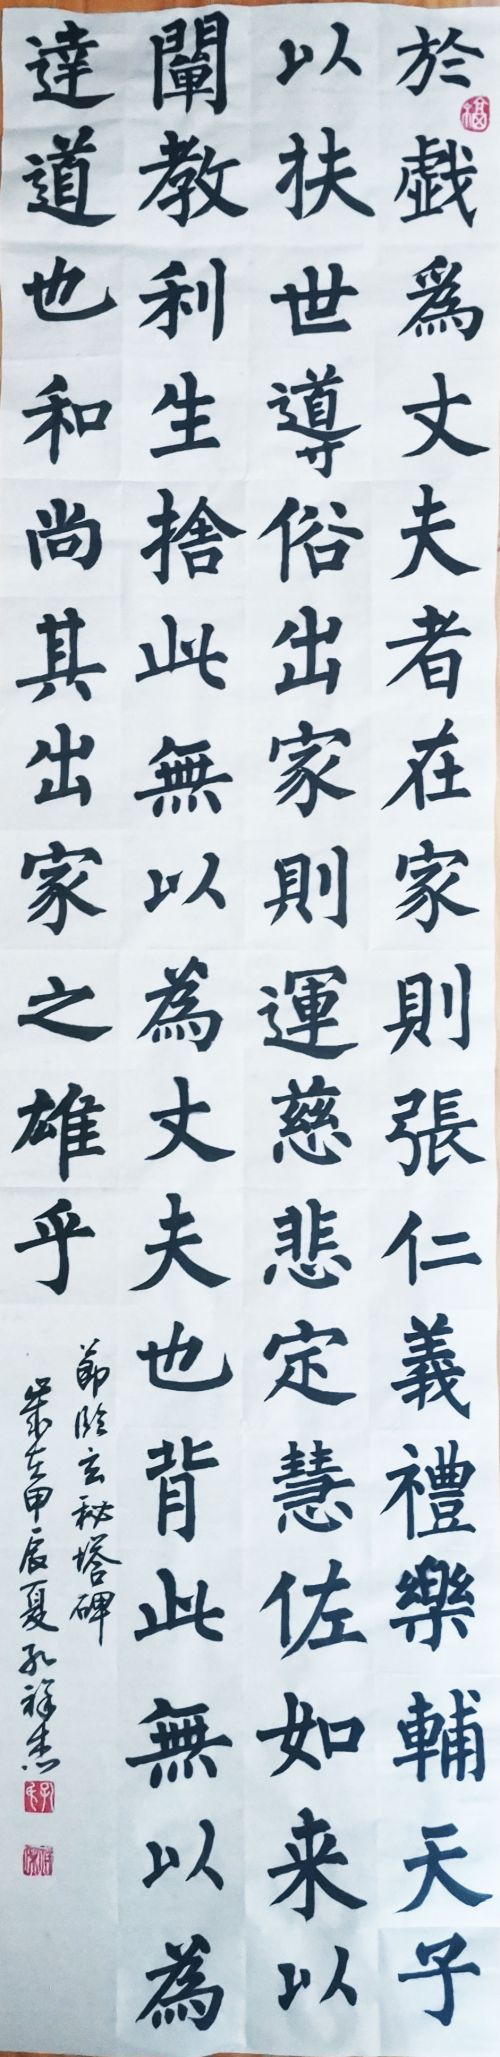 於戯為丈夫者在家則張仁義禮樂輔天子
以扶世導俗出家則運慈悲定慧佐如来以
闡教利生捨此無以為丈夫也背此無以為
達道也和尚其出家之雄乎
節臨玄秘塔碑
歲在甲辰夏孔祥杰
福